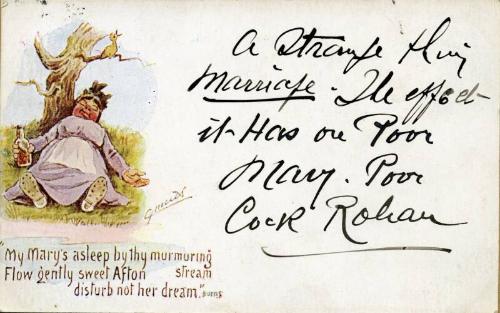 A Strange thing
Marriage. The effect
it Has on Poor
Mary. Poor
Cock Rohan
"My Mary's asleep by thy murmuring
Flow gently sweet Afton stream
disturb not her dream." BURNS